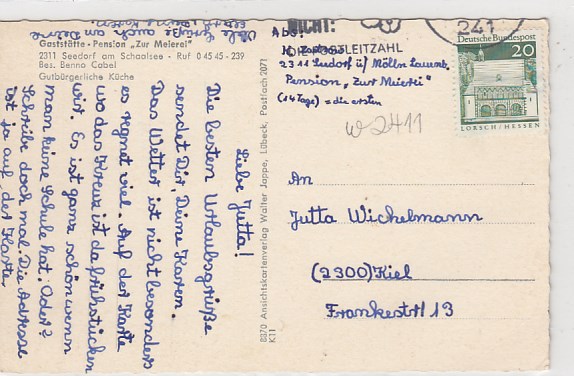 Gaststätte - Pension „Zur Meierei"
2311 Seedorf am Schaalsee - Ruf 0 45 45 - 239
Bes. Benno Cabel
Gutbürgerliche Küche
Liebe Jutta!
Die besten Urlaubsgrüße
sendet Dir, Deine Karen.
Das Wetter ist nicht besonders
es regnet viel. Auf der Karte
wo das Kreuz ist da frühstücken
wir. Es ist ganz schön wenn
man keine Schule hat. Oder?
Schreibe doch mal. Die Adresse
ist ja auf der Karte
Viele Grüße auch an Deine
8870 Ansichtskartenverlag Walter Jappe, Lübeck, Postfach 2071
K11
NICHT!
POSTLEITZAHL
241
Abs:
K.
2311 Seedorf ü/ Mölln Lauenb.
Pension „Zur Meierei"
(14 Tage) = die ersten
w 2411
Deutsche Bundespost
20
LORSCH/HESSEN
An
Jutta Wichelmann
(2300) Kiel
Frankestr 13